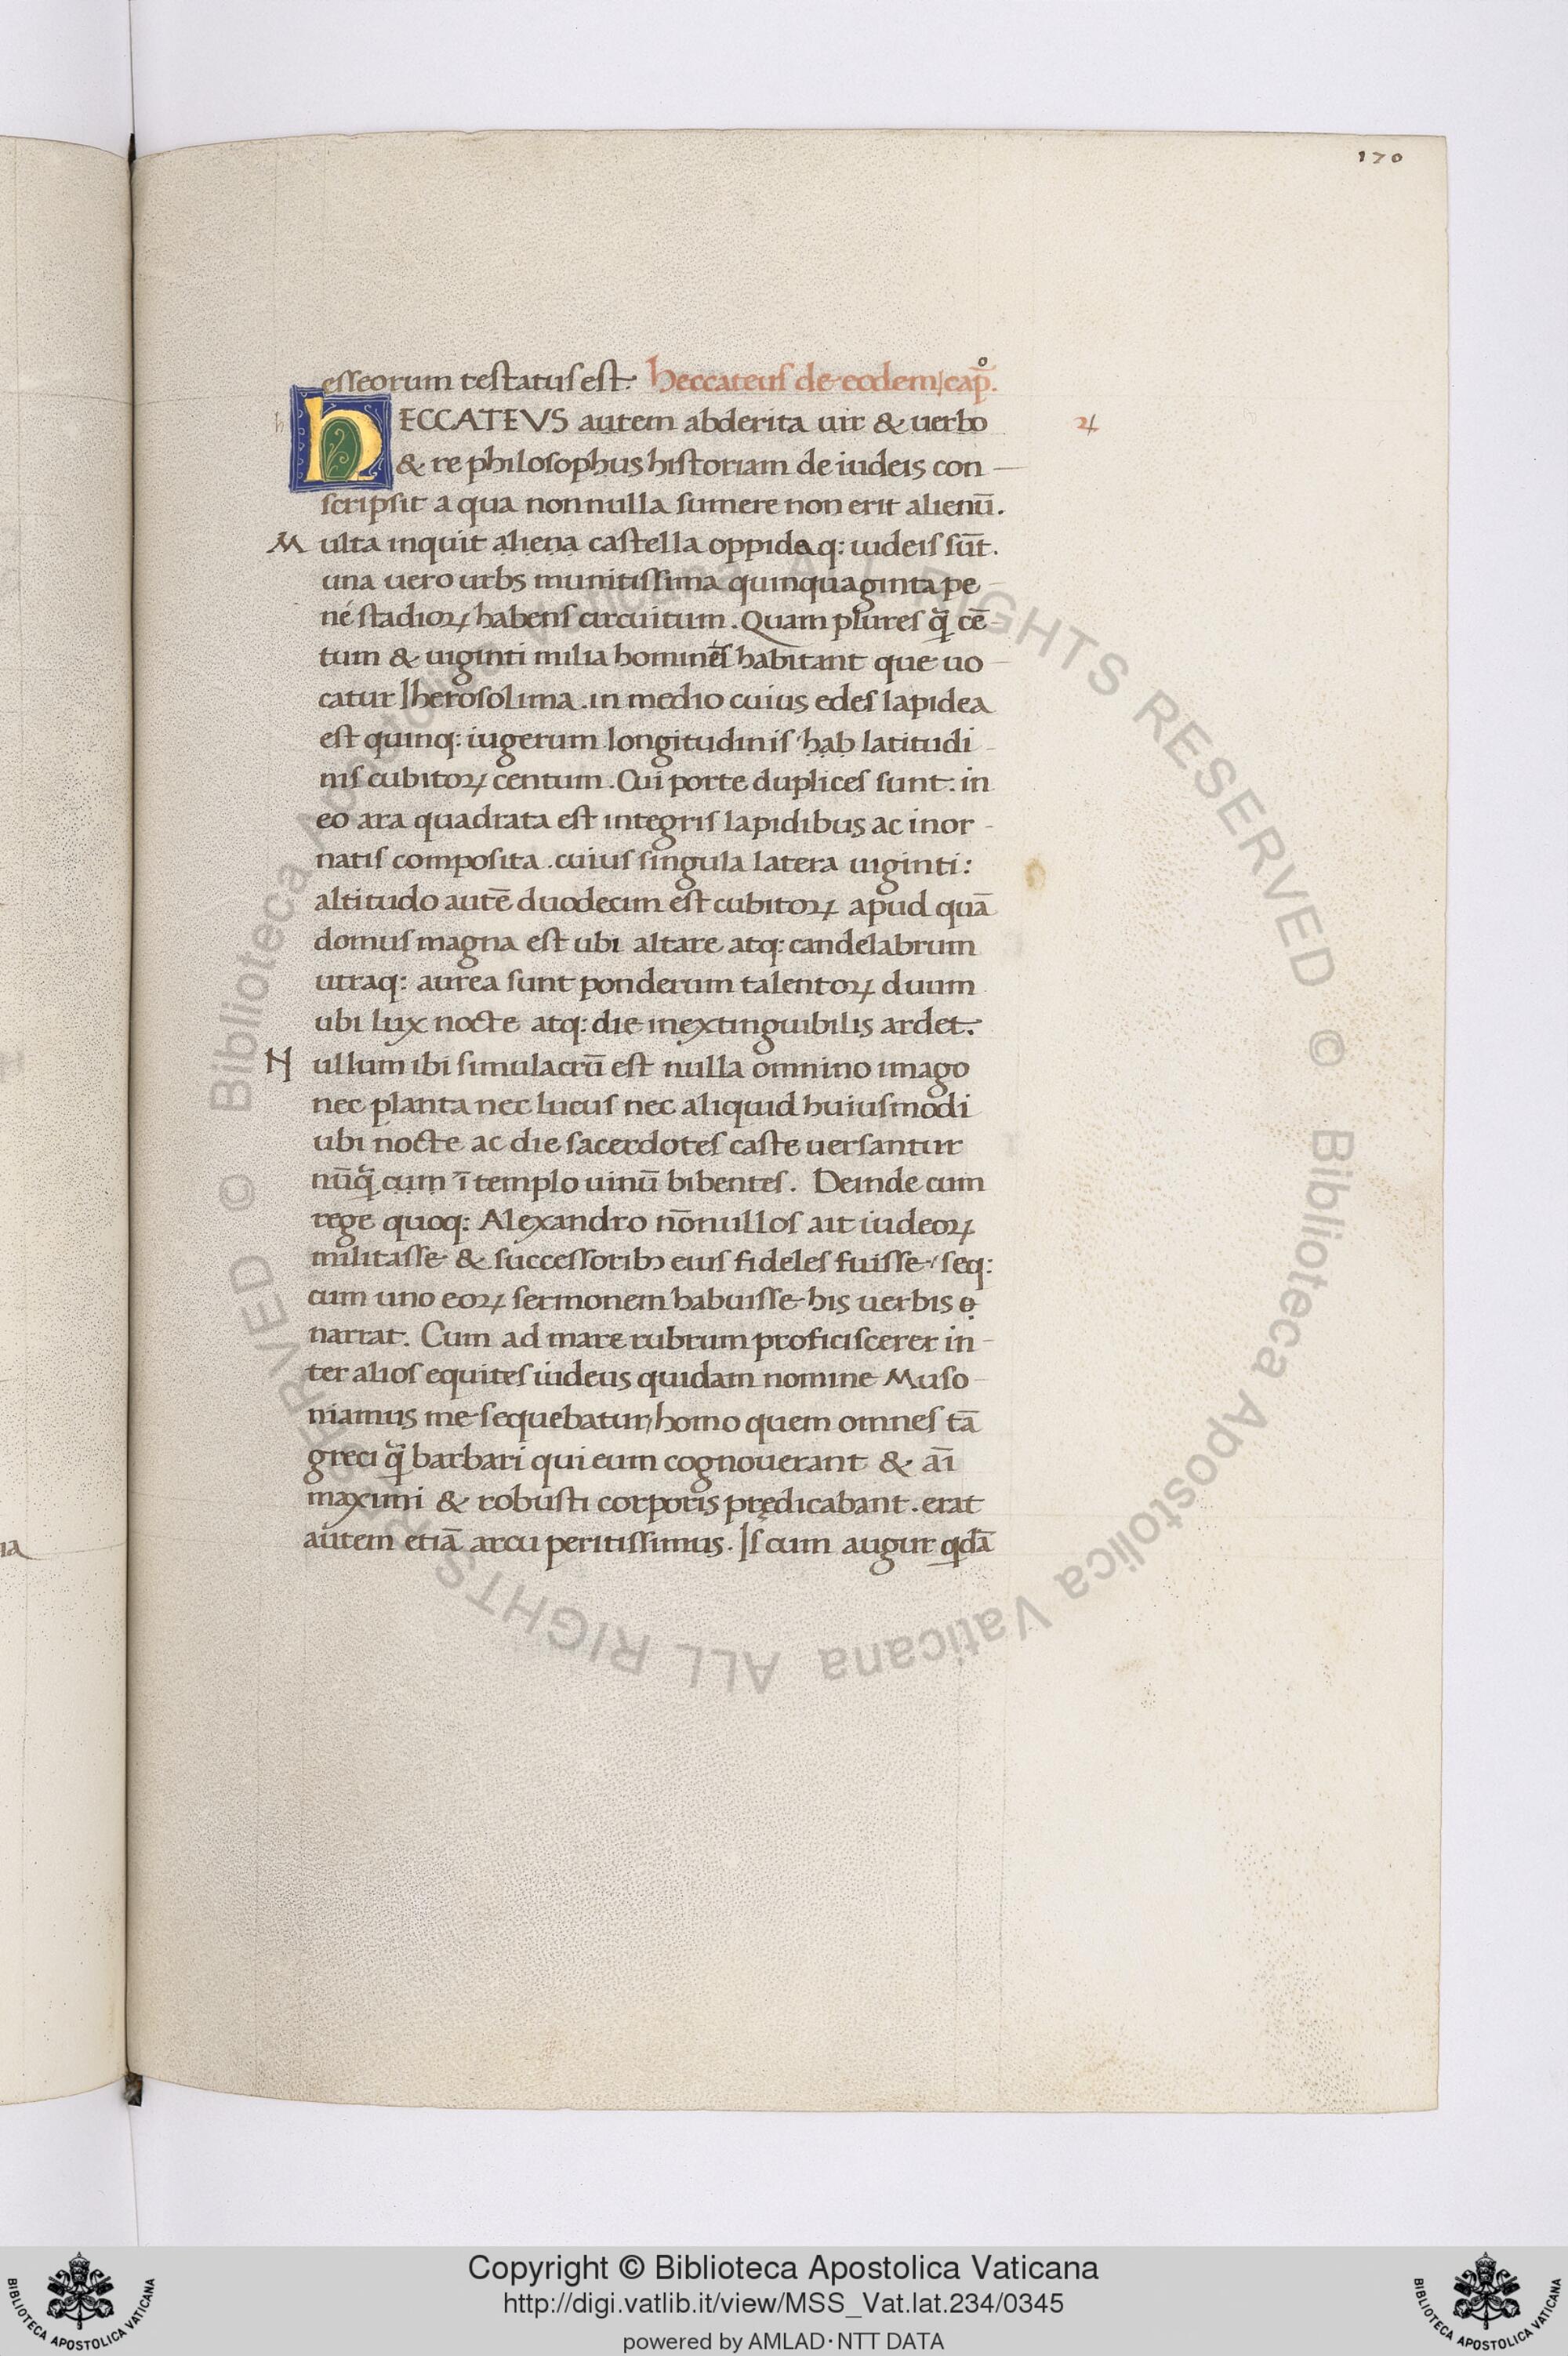 170
esseorum testatus est. heccateus de eodem cap̊.
hECCATEVS autem abderita uir & uerbo 4
& re philosophus historiam de iudeis con-
scripsit a qua nonnulla sumere non erit alienū.
Multa inquit aliena castella oppidaq: iudeis sūt.
una uero urbs munitissima quinquaginta pe-
né stadioꝝ habens circuitum. Quam plures q̃ cē-
tum & uiginti milia homines habitant que uo-
catur Iherosolima. in medio cuius edes lapidea
est quinq: iugerum longitudinis hab latitudi-
nis cubitoꝝ centum. Cui porte duplices sunt. in
eo ara quadrata est integris lapidibus ac inor-
natis composita. cuius singula latera uiginti:
altitudo autē duodecim est cubitoꝝ apud quā
domus magna est ubi altare atq: candelabrum
utraq: aurea sunt ponderum talentoꝝ duum
ubi lux nocte atq: die inextinguibilis ardet.
Nullum ibi simulacrū est nulla omnino imago
nec planta nec lucus nec aliquid huiusmodi
ubi nocte ac die sacerdotes caste uersantur
nūq̃ cum ī templo uinū bibentes. Deinde cum
rege quoq: Alexandro nōnullos ait iudeoꝝ
militasse & successoribꝫ eius fideles fuisse / seq:
cum uno eoꝝ sermonem habuisse his uerbis e
narrat. Cum ad mare rubrum proficiscerer in-
ter alios equites iudeus quidam nomine Muso-
niamus me sequebatur, homo quem omnes tā
greci q̃ barbari qui eum cognouerant & aī
maximi & robusti corporis prędicabant. erat
autem etiā arcu peritissimus. Is cum augur qdā
Copyright © Biblioteca Apostolica Vaticana
http://digi.vatlib.it/view/MSS_Vat.lat.234/0345
powered by AMLAD·NTT DATA
BIBLIOTECA APOSTOLICA VATICANA
BIBLIOTECA APOSTOLICA VATICANA
© Biblioteca Apostolica Vaticana ALL RIGHTS RESERVED © Biblioteca Apostolica Vaticana ALL RIGHTS RESERVED